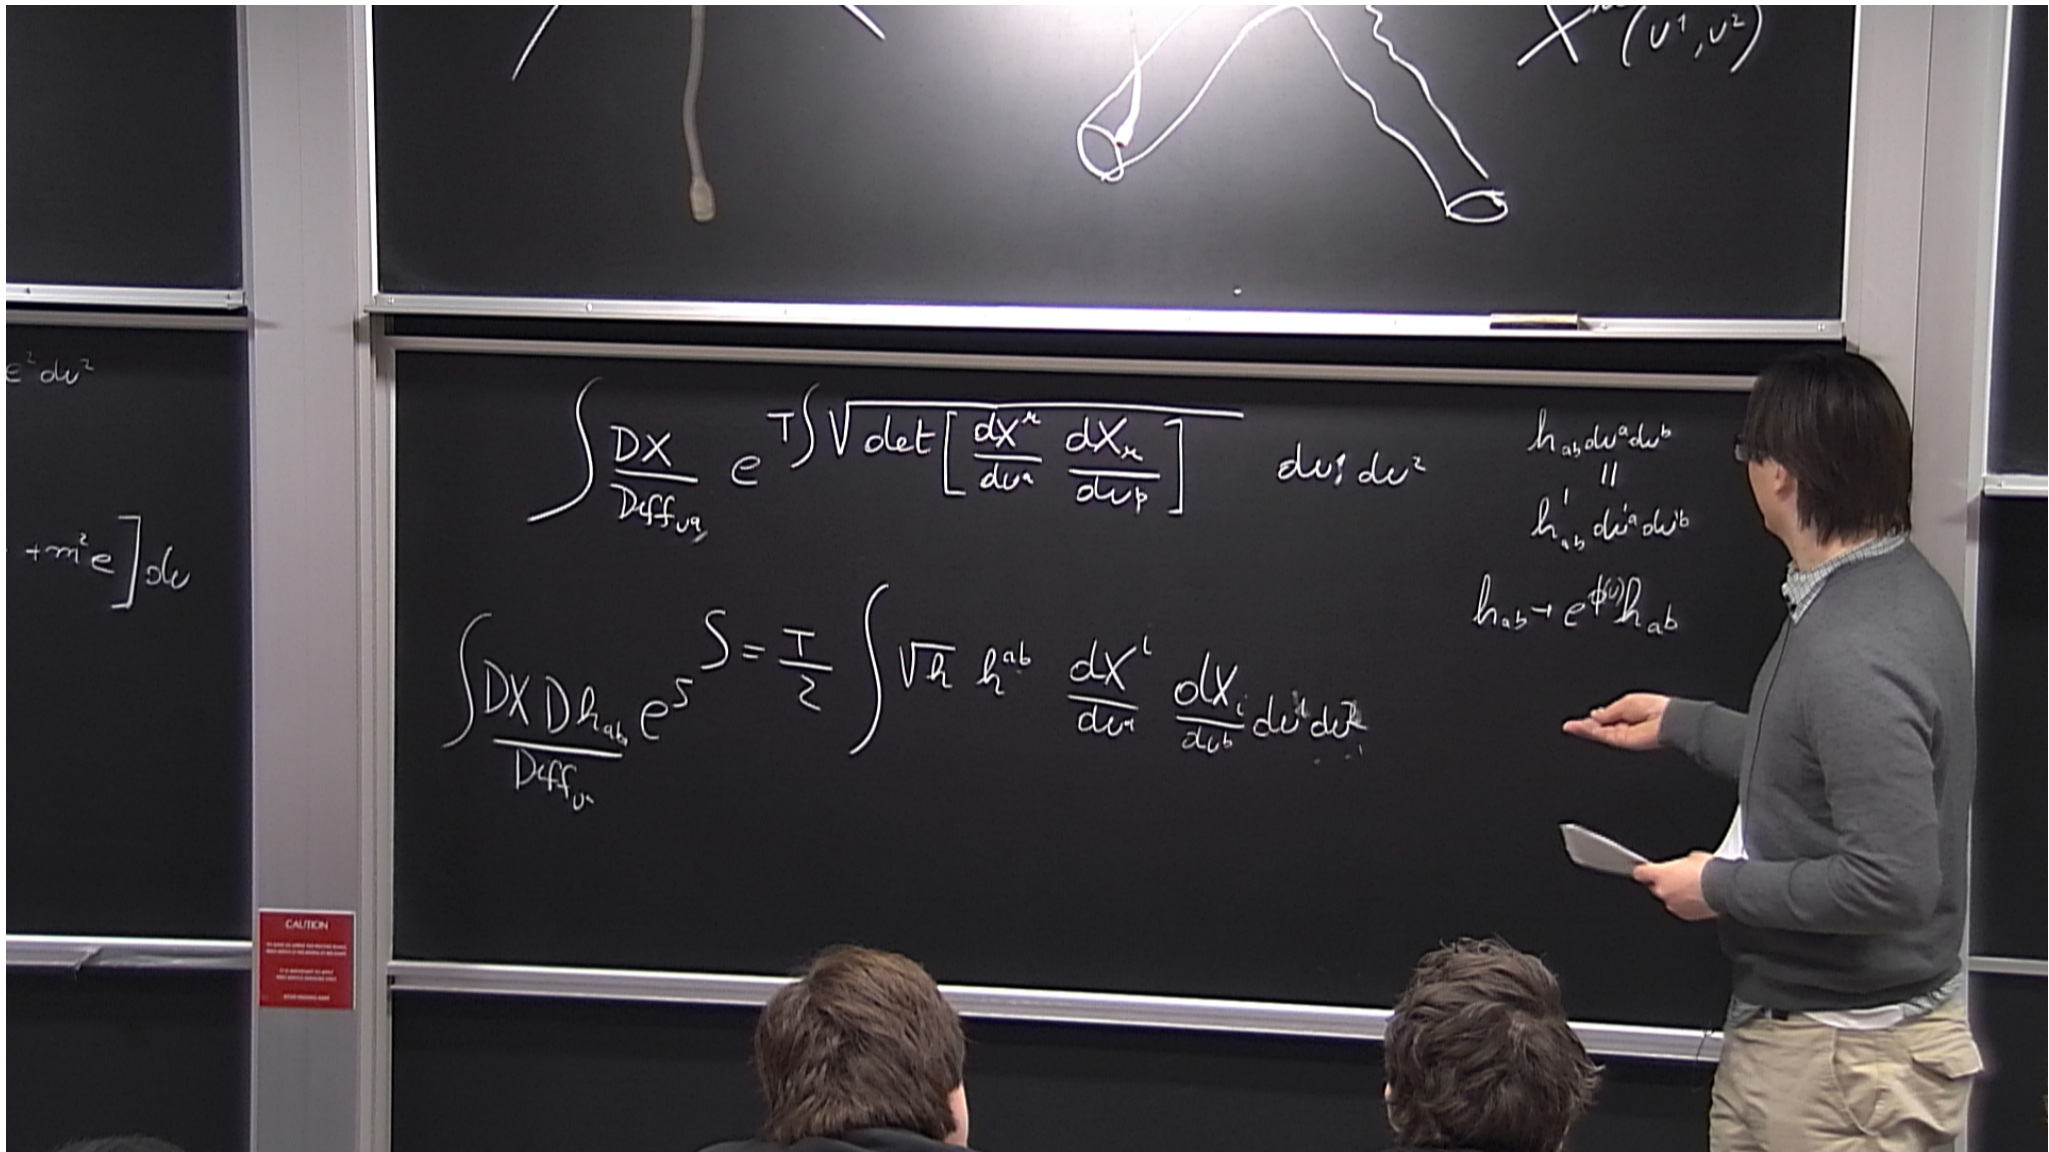 X^μ (υ¹, υ²)
e² dυ²
+ m² e ] dυ
∫ DX / Diff_{υ^a} e^{T∫ √det [ dX^μ/dυ^a dX_μ/dυ^β ] dυ¹ dυ²}
h_{ab} dυ^a dυ^b
||
h'_{ab} dυ'^a dυ'^b
h_{ab} → e^{φ(υ)} h_{ab}
∫ DX Dh_{ab} / Diff_{υ^a} e^S S = T/2 ∫ √h h^{ab} dX^i/dυ^a dX_i/dυ^b dυ¹ dυ²
CAUTION